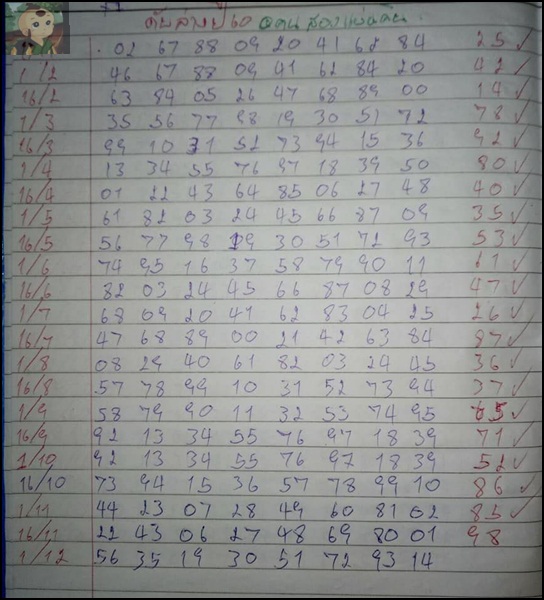 ดับล่างปี60 คนสองแผ่นดิน
02 67 88 09 20 41 62 84 25 ✓
1/2 46 67 88 09 41 62 84 20 42 ✓
16/2 63 84 05 26 47 68 89 00 14 ✓
1/3 35 56 77 98 19 30 51 72 78 ✓
16/3 99 10 31 52 73 94 15 36 92 ✓
1/4 13 34 55 76 97 18 39 50 80 ✓
16/4 01 22 43 64 85 06 27 48 40 ✓
1/5 61 82 03 24 45 66 87 09 35 ✓
16/5 56 77 98 19 30 51 72 93 53 ✓
1/6 74 95 16 37 58 79 90 11 61 ✓
16/6 82 03 24 45 66 87 08 29 47 ✓
1/7 68 09 20 41 62 83 04 25 26 ✓
16/7 47 68 89 00 21 42 63 84 87 ✓
1/8 08 29 40 61 82 03 24 45 36 ✓
16/8 57 78 99 10 31 52 73 94 37 ✓
1/9 58 79 90 11 32 53 74 95 65 ✓
16/9 92 13 34 55 76 97 18 39 71 ✓
1/10 92 13 34 55 76 97 18 39 52 ✓
16/10 73 94 15 36 57 78 99 10 86 ✓
1/11 44 23 07 28 49 60 81 02 85 ✓
16/11 22 43 06 27 48 69 80 01 98
1/12 56 35 19 30 51 72 93 14